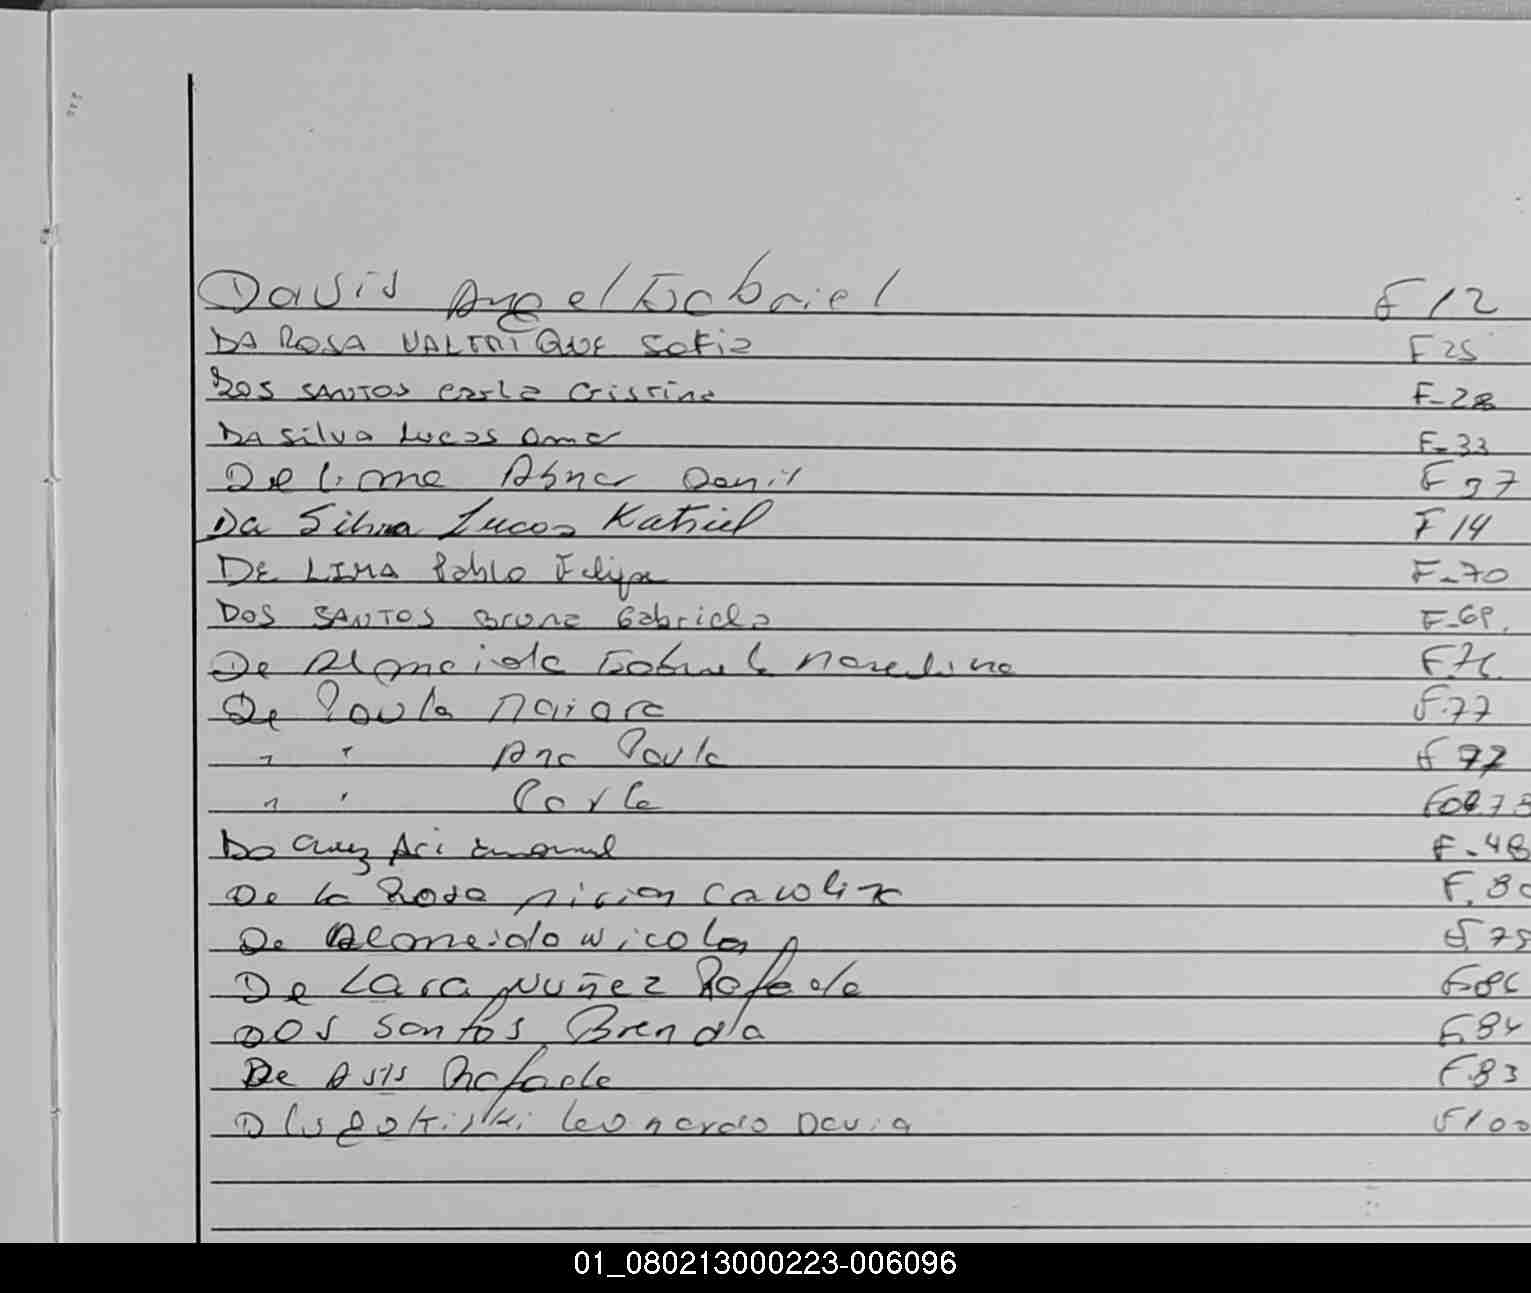 Davis Angel Gabriel F 12
DA ROSA Sofia F 25
DOS SANTOS Carla Cristina F-28
DA Silva Lucas Omar F-33
De Lima Abner F 37
Da Silva Lucas Katriel F 14
DE LIMA Pablo Felipe F-70
DOS SANTOS Bruna Gabriela F-69.
De Almeida Gabriela F.76.
De Paula Maiara F.77
" " Ana Paula F 77
" " Carla
Do F-48
De la Rosa Miriam Carolina F.80
De Almeida Nicolas F.75
De Lara Nuñez Rafaela F-86
DOS Santos Brenda F.84
De Asis Rafaela F.83
Leonardo F 100
01_080213000223-006096